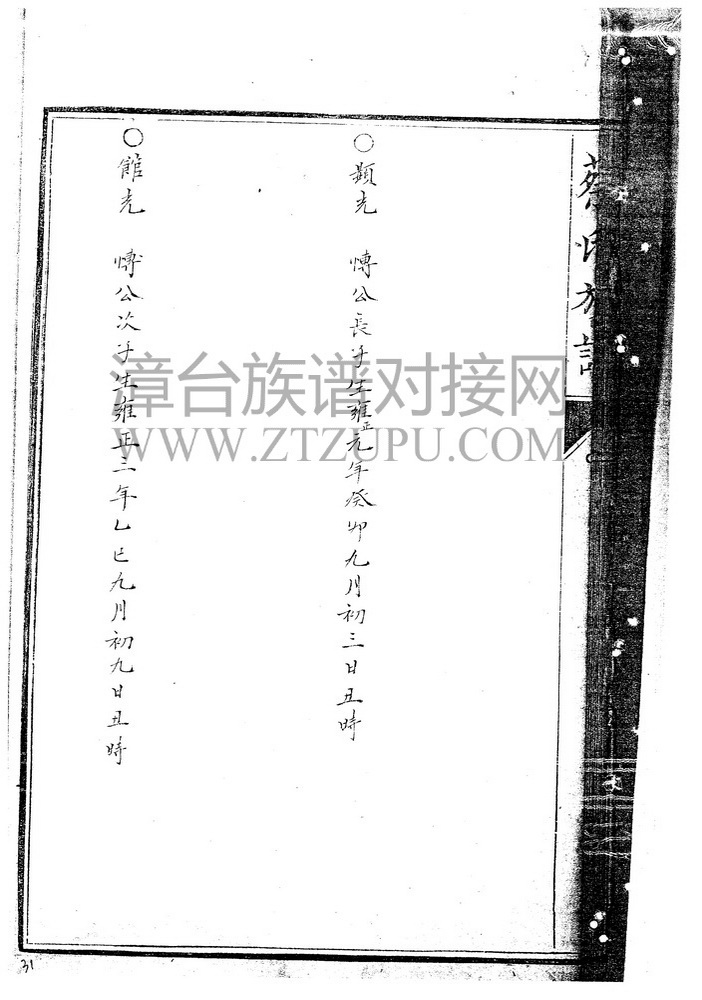 蔡氏族譜
○顯光 愽公長子生雍正元年癸卯九月初三日丑時
○館光 愽公次子生雍正三年乙巳九月初九日丑時
漳台族谱对接网
WWW.ZTZUPU.COM
31